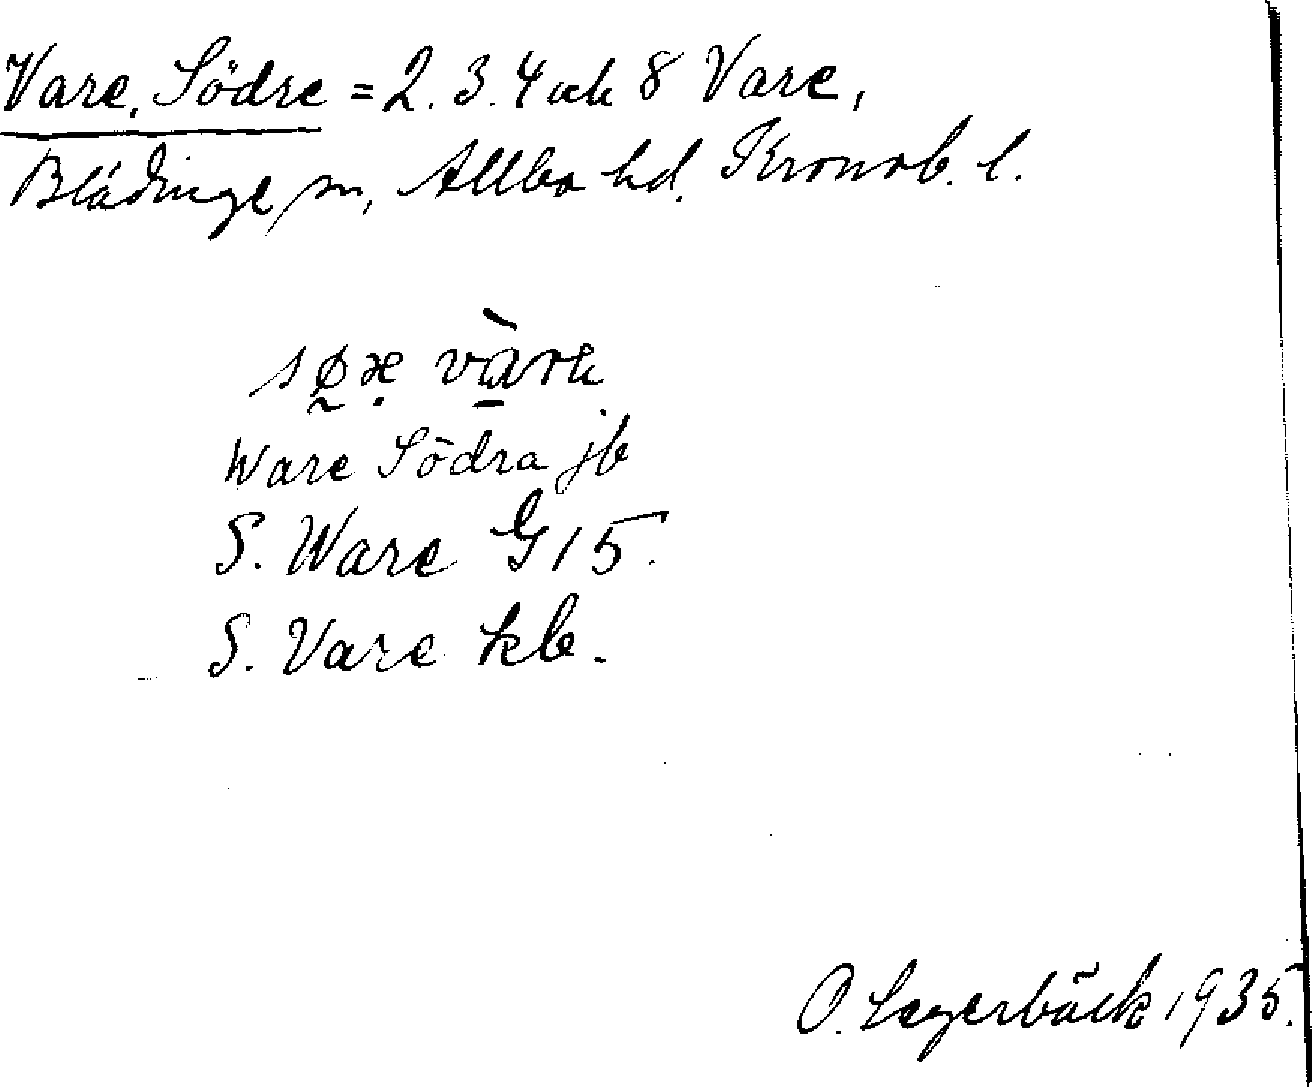 Vare, Södre = 2. 3. 4 och 8 Vare,
Blädinge sn, Allbo hd. Kronob. l.
Ware Södra jb
S. Ware G 15.
S. Vare kb.
O. Lagerbäck 1935.